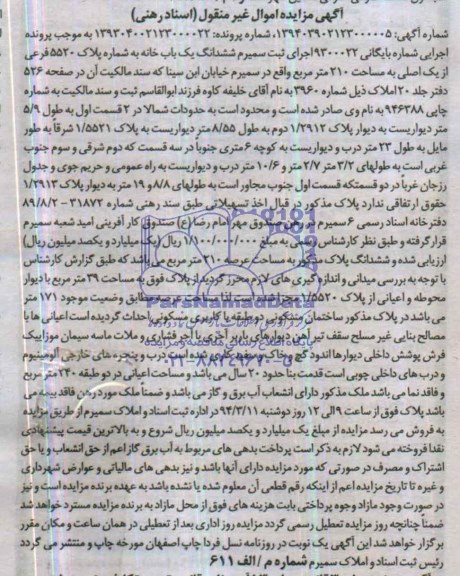 آگهی مزایده اموال غیر منقول (اسناد رهنی)
شماره آگهی: ۱۳۹۴۰۳۹۰۲۱۲۳۰۰۰۰۰۵، شماره پرونده: ۱۳۹۳۰۴۰۰۲۱۲۳۰۰۰۰۲۲ به موجب پرونده
اجرایی شماره بایگانی ۹۳۰۰۰۲۲ اجرای ثبت سمیرم ششدانگ یک باب خانه به شماره پلاک ۵۵۲۰ فرعی
از یک اصلی به مساحت ۲۱۰ متر مربع واقع در سمیرم خیابان ابن سینا که سند مالکیت آن در صفحه ۵۲۶
دفتر جلد ۲۰ املاک ذیل شماره ۳۹۶۰ به نام آقای خلیفه کاوه فرزند ابوالقاسم ثبت و سند مالکیت به شماره
چاپی ۹۴۶۳۸۸ به نام وی صادر شده است و محدود است به حدودات شمالا در ۲ قسمت اول به طول ۵/۹
متر دیواریست به دیوار پلاک ۱/۲۹۱۲ دوم به طول ۸/۵۵ متر دیواریست به پلاک ۱/۵۵۲۱ شرقا به طور
مایل به طول ۲۳ متر درب و دیواریست به کوچه ۶ متری جنوبا در سه قسمت که دوم شرقی و سوم جنوب
غربی است به طولهای ۳/۲ متر ۲/۷ متر و ۱۰/۶ متر درب و دیواریست به راه عمومی و حریم جوی و جدول
رزجان غربا در دو قسمتکه قسمت اول جنوب مجاور است به طولهای ۸/۸ و ۱۹ متر به دیوار پلاک ۱/۲۹۱۳
حقوق ارتفاقی ندارد پلاک مذکور در قبال اخذ تسهیلاتی طبق سند رهنی شماره ۳۱۸۷۲ - ۸۹/۸/۲
دفترخانه اسناد رسمی ۶ سمیرم در رهن صندوق مهر امام رضا (ع) صندوق کار آفرینی امید شعبه سمیرم
قرار گرفته و طبق نظر کارشناس رسمی به مبلغ ۱/۱۰۰/۰۰۰/۰۰۰ ریال (یک میلیارد و یکصد میلیون ریال)
ارزیابی شده و ششدانگ پلاک مذکور به مساحت عرصه ۲۱۰ متر مربع می باشد که طبق گزارش کارشناس
با توجه به بررسی میدانی و اندازه گیری های لازم محرز گردید از پلاک فوق به مساحت ۳۹ متر مربع با دیوار
محوطه و اعیانی از پلاک ۱/۵۵۲۰ مجزا شده است لذا مساحت عرصه مطابق وضعیت موجود ۱۷۱ متر
می باشد در پلاک مذکور ساختمان مسکونی دو طبقه با کاربری مسکونی احداث گردیده است اعیانی ها با
مصالح بنایی غیر مسلح سقف تیر آهن دیوارهای باربر آجری، با آجر فشاری و ملات ماسه سیمان موزاییک
فرش پوشش داخلی دیوارها اندود گچ و خاک و سفید کاری شده است درب و پنجره های خارجی آلومینیوم
و درب های داخلی چوبی است قدمت بنا حدود ۲۰ سال می باشد و مساحت اعیانی در دو طبقه ۲۴۰ متر مربع
و فاقد نما می باشد ملک مذکور دارای انشعاب آب برق و گاز می باشد و ضمنا ملک مورد رهن فاقد بیمه می
باشد پلاک فوق از ساعت ۹ الی ۱۲ روز دوشنبه ۹۴/۳/۱۱ در اداره ثبت اسناد و املاک سمیرم از طریق مزایده
به فروش می رسد مزایده از مبلغ یک میلیارد و یکصد میلیون ریال شروع و به بالاترین قیمت پیشنهادی
نقدا فروخته می شود لازم به ذکر است پرداخت بدهی های مربوط به آب برق گاز اعم از حق انشعاب و یا حق
اشتراک و مصرف در صورتی که مورد مزایده دارای آنها باشد و نیز بدهی های مالیاتی و عوارض شهرداری
و غیره تا تاریخ مزایده اعم از اینکه رقم قطعی آن معلوم شده یا نشده باشد به عهده برنده مزایده است و نیز
در صورت وجود مازاد وجوه پرداختی بابت هزینه های فوق از محل مازاد به برنده مزایده مسترد خواهد شد
ضمنا چنانچه روز مزایده تعطیل رسمی گردد مزایده روز اداری بعد از تعطیلی در همان ساعت و مکان مقرر
برگزار خواهد شد این آگهی یک نوبت در روزنامه نسل فردا چاپ اصفهان مورخه چاپ و منتشر می گردد
رئیس ثبت اسناد و املاک سمیرم شماره م / الف ۶۱۱
ParsNamadData
پایگاه اطلاع رسانی مناقصه و مزایده
۰۲۱-۸۸۳۴۹۶۷۰-۵